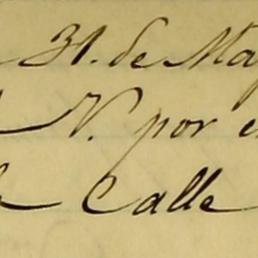 31. de May
N. por e
Calle